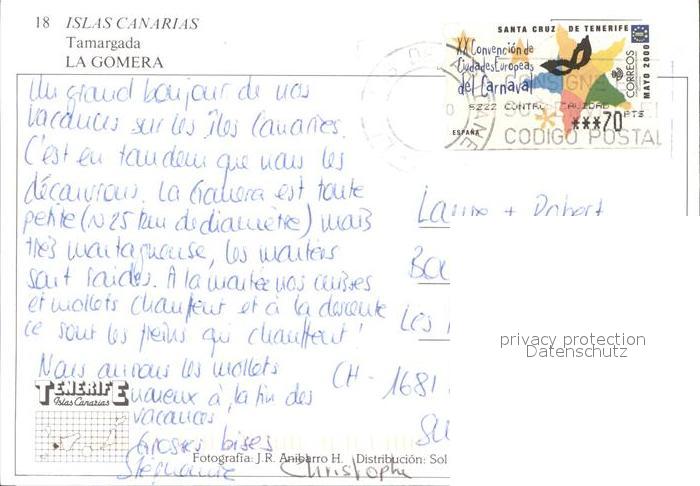 18 ISLAS CANARIAS
Tamargada
LA GOMERA
SANTA CRUZ DE TENERIFE
XX Convención de
Ciudades Europeas
del Carnaval
CORREOS
MAYO 2000
5222 CONTROL CALIDAD
***70 PTS
ESPAÑA
CONSIGNE
SU
CODIGO POSTAL
Un grand bonjour de nos
vacances sur les îles Canaries.
C'est en tandem que nous les
découvrons. La Gomera est toute
petite (~25 km de diamètre) mais
très montagneuse, les montées
sont raides. A la montée nos cuisses
et mollets chauffent et à la descente
ce sont les freins qui chauffent!
Nous aurons les mollets
noueux à la fin des
vacances.
Grosses bises
Stéphanie Christophe
Laure + Robert
Les
CH - 1681
privacy protection
Datenschutz
TENERIFE
Islas Canarias
Fotografía: J.R. Anibarro H. Distribución: Sol